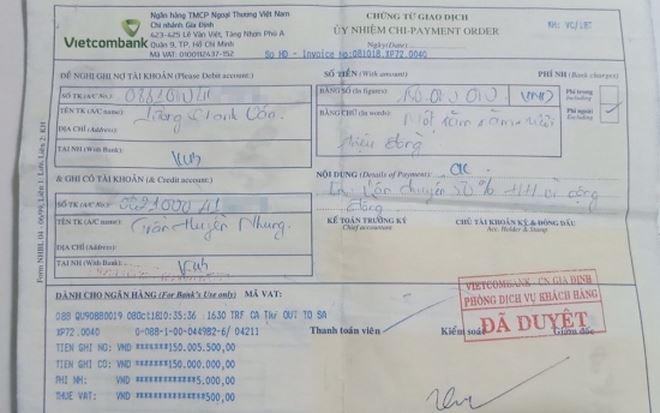 Vietcombank
Ngân hàng TMCP Ngoại Thương Việt Nam
Chi nhánh Gia Định
623-625 Lê Văn Việt, Tăng Nhơn Phú A
Quận 9, TP. Hồ Chí Minh
Mã VAT: 0100112437-152
CHỨNG TỪ GIAO DỊCH
ỦY NHIỆM CHI-PAYMENT ORDER
Ngày(Date):
KH: VC/18T
So HD - Invoice no:081018.XP72.0040
ĐỀ NGHỊ GHI NỢ TÀI KHOẢN (Please Debit account:)
SỐ TK (A/C No.)
TÊN TK (A/C name):
ĐỊA CHỈ (Address):
TẠI NH (With Bank):
Vcb
SỐ TIỀN (With amount)
PHÍ NH (Bank charges)
BẰNG SỐ (In figures) VND
BẰNG CHỮ (In words) Một trăm năm mươi
triệu đồng
Phí trong
Including
Phí ngoài
Excluding
& GHI CÓ TÀI KHOẢN (& Credit account:)
SỐ TK (A/C No.)
TÊN TK (A/C name): Trần Huyền Nhung.
ĐỊA CHỈ (Address):
TẠI NH (With Bank):
Vcb
NỘI DUNG (Details of Payment)
chuyển 50% HH
đồng
KẾ TOÁN TRƯỞNG KÝ
Chief accountant
CHỦ TÀI KHOẢN KÝ & ĐÓNG DẤU
Acc. Holder & Stamp
DÀNH CHO NGÂN HÀNG (For Bank's Use only) MÃ VAT:
088 QU90880019 080ct1810:35:36 1630 TRF CA Tkr OUT TO SA
XP72.0040 0-088-1-00-044982-6/ 04211
TIEN GHI NO: VND *******150.005.500,00
TIEN GHI CO: VND *******150.000.000,00
PHI NH: VND 5.000,00
THUE VAT: VND 500,00
Thanh toán viên
Kiểm soát
Giám đốc
VIETCOMBANK - CN GIA ĐỊNH
PHÒNG DỊCH VỤ KHÁCH HÀNG
ĐÃ DUYỆT